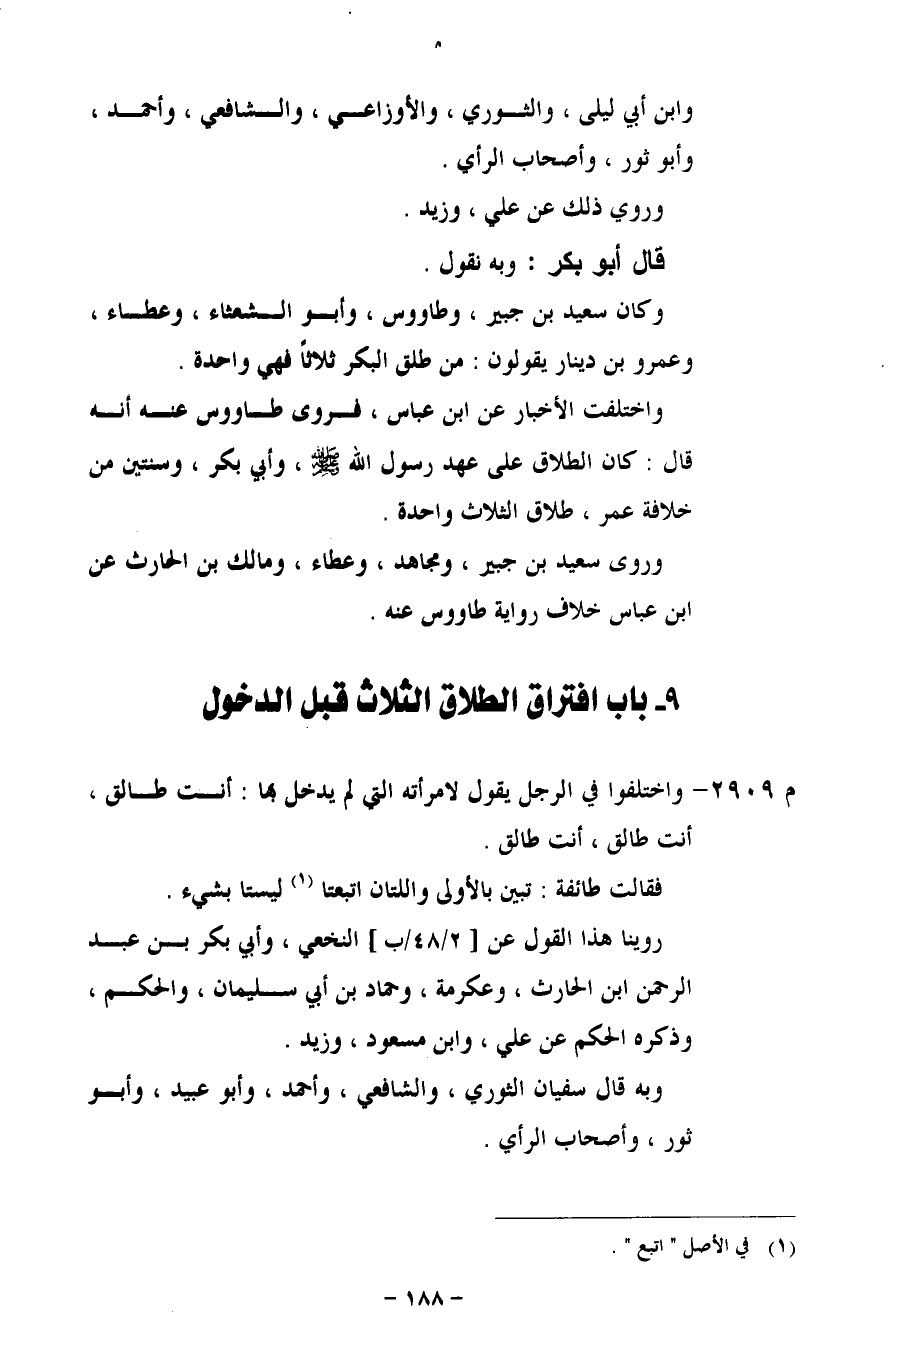 وابن أبي ليلى ، والثوري ، والأوزاعي ، والشافعي ، وأحمد ،
وأبو ثور ، وأصحاب الرأي .
وروي ذلك عن علي ، وزيد .
قال أبو بكر : وبه نقول .
وكان سعيد بن جبير ، وطاووس ، وأبو الشعثاء ، وعطاء ،
وعمرو بن دينار يقولون : من طلق البكر ثلاثاً فهي واحدة .
واختلفت الأخبار عن ابن عباس ، فروى طاووس عنه أنه
قال : كان الطلاق على عهد رسول الله ﷺ ، وأبي بكر ، وسنتين من
خلافة عمر ، طلاق الثلاث واحدة .
وروى سعيد بن جبير ، ومجاهد ، وعطاء ، ومالك بن الحارث عن
ابن عباس خلاف رواية طاووس عنه .
٩ـ باب افتراق الطلاق الثلاث قبل الدخول
م ٢٩٠٩– واختلفوا في الرجل يقول لامرأته التي لم يدخل بها : أنت طالق ،
أنت طالق ، أنت طالق .
فقالت طائفة : تبين بالأولى واللتان اتبعتا (١) ليستا بشيء .
روينا هذا القول عن [ ٤٨/٢/ب ] النخعي ، وأبي بكر بن عبد
الرحمن ابن الحارث ، وعكرمة ، وحماد بن أبي سليمان ، والحكم ،
وذكره الحكم عن علي ، وابن مسعود ، وزيد .
وبه قال سفيان الثوري ، والشافعي ، وأحمد ، وأبو عبيد ، وأبو
ثور ، وأصحاب الرأي .
(١) في الأصل " اتبع " .
– ١٨٨ –